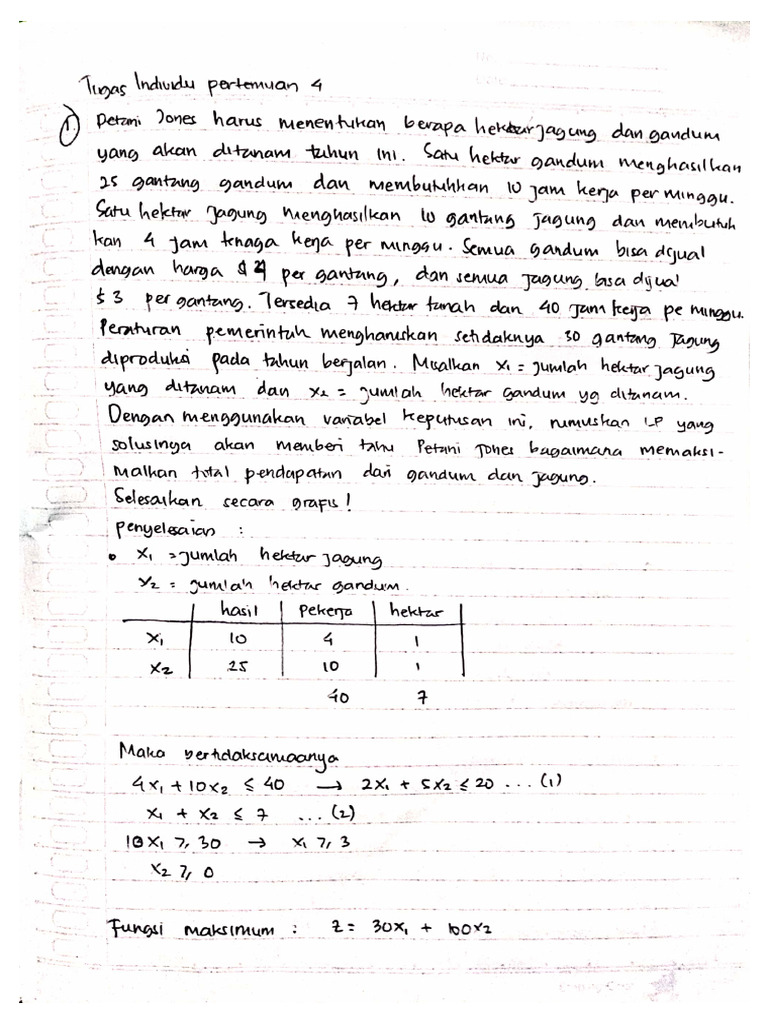 Tugas Individu pertemuan 4
1. Petani Jones harus menentukan berapa hektar jagung dan gandum
yang akan ditanam tahun ini. Satu hektar gandum menghasilkan
25 gantang gandum dan membutuhkan 10 jam kerja per minggu.
Satu hektar jagung menghasilkan 10 gantang jagung dan membutuh
kan 4 jam tenaga kerja per minggu. Semua gandum bisa dijual
dengan harga $ 4 per gantang, dan semua jagung bisa dijual
$ 3 per gantang. Tersedia 7 hektar tanah dan 40 jam kerja pe minggu.
Peraturan pemerintah mengharuskan setidaknya 30 gantang jagung
diproduksi pada tahun berjalan. Misalkan x₁ = jumlah hektar jagung
yang ditanam dan x₂ = jumlah hektar gandum yg ditanam.
Dengan menggunakan variabel keputusan ini, rumuskan LP yang
solusinya akan memberi tahu Petani Jones bagaimana memaksi-
malkan total pendapatan dari gandum dan jagung.
Selesaikan secara grafis!
Penyelesaian :
• x₁ = jumlah hektar jagung
x₂ = jumlah hektar gandum.
hasil pekerja hektar
x₁ 10 4 1
x₂ 25 10 1
40 7
Maka pertidaksamaanya
4x₁ + 10x₂ ≤ 40 → 2x₁ + 5x₂ ≤ 20 ... (1)
x₁ + x₂ ≤ 7 ... (2)
10x₁ ≥ 30 → x₁ ≥ 3
x₂ ≥ 0
Fungsi maksimum : z = 30x₁ + 100x₂